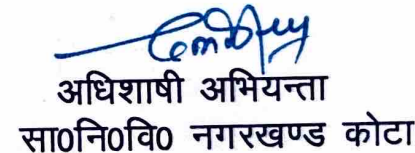 अधिशाषी अभियन्ता
सा0नि0वि0 नगरखण्ड कोटा